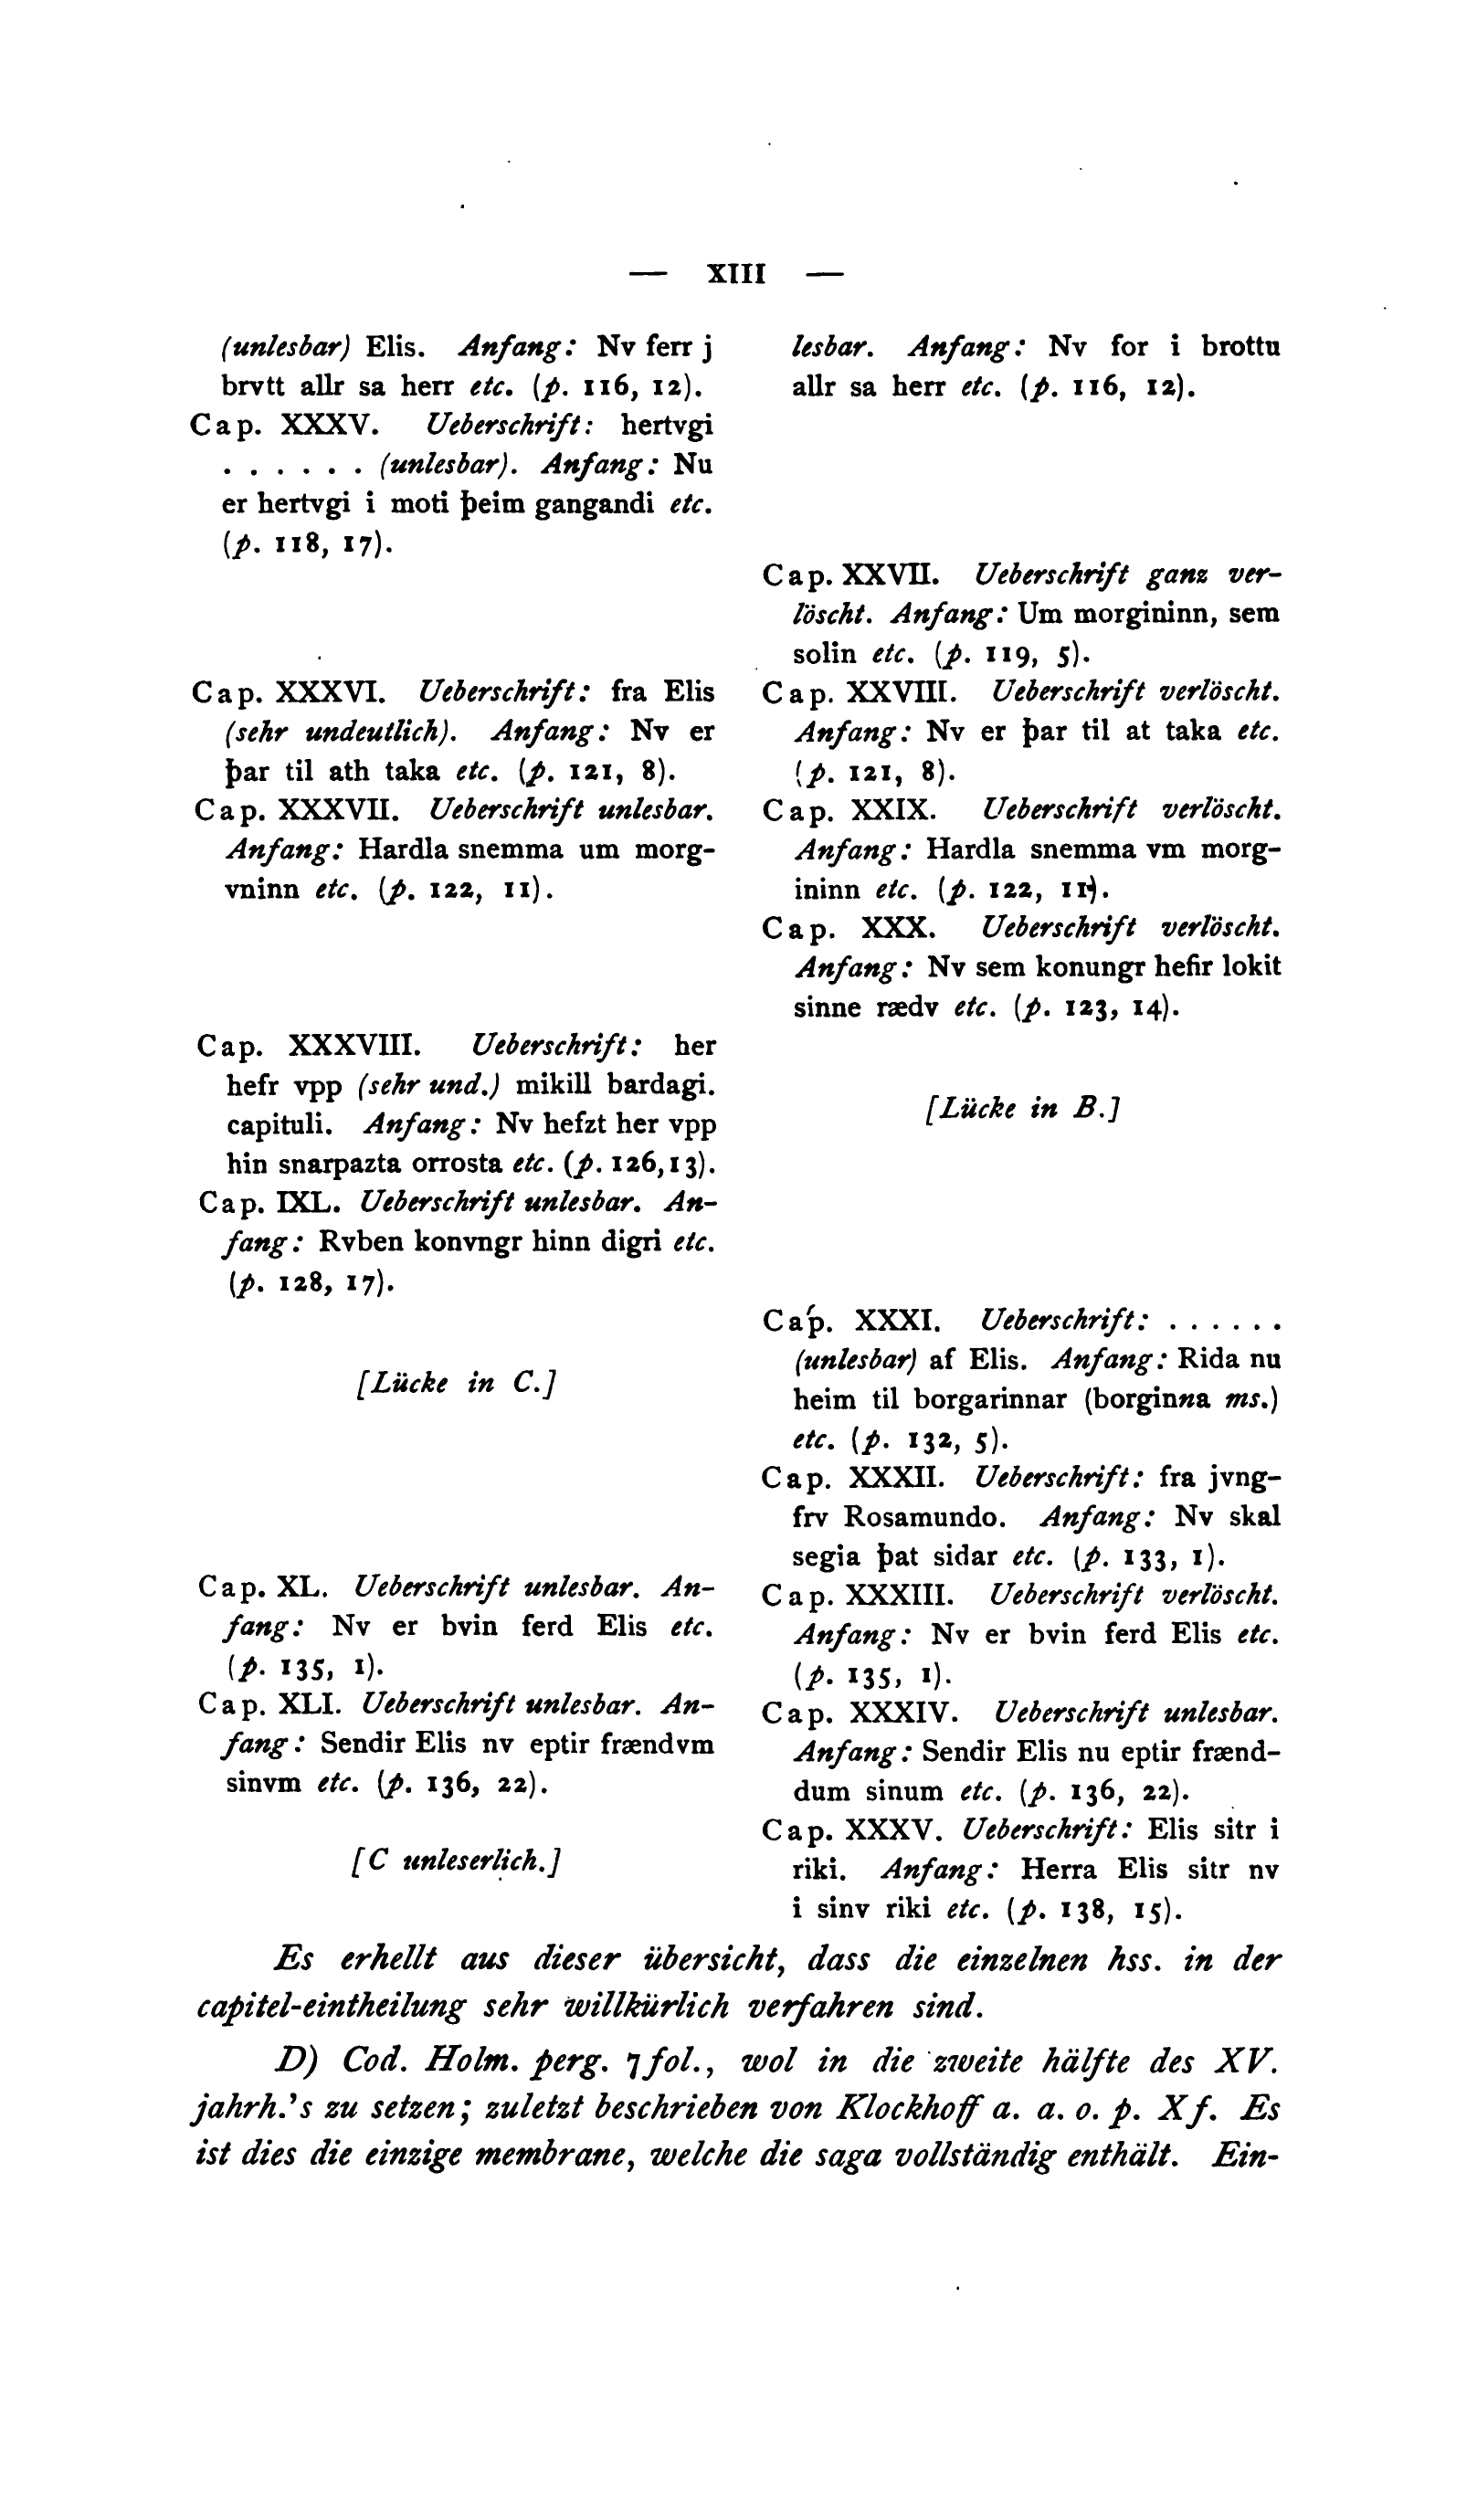 — XIII —
(unlesbar) Elis. Anfang: Nv ferr j
brvtt allr sa herr etc. (p. 116, 12).
Cap. XXXV. Ueberschrift: hertvgi
. . . . . . (unlesbar). Anfang: Nu
er hertvgi i moti þeim gangandi etc.
(p. 118, 17).
Cap. XXXVI. Ueberschrift: fra Elis
(sehr undeutlich). Anfang: Nv er
þar til ath taka etc. (p. 121, 8).
Cap. XXXVII. Ueberschrift unlesbar.
Anfang: Hardla snemma um morg-
vninn etc. (p. 122, 11).
Cap. XXXVIII. Ueberschrift: her
hefr vpp (sehr und.) mikill bardagi.
capituli. Anfang: Nv hefzt her vpp
hin snarpazta orrosta etc. (p. 126,13).
Cap. IXL. Ueberschrift unlesbar. An-
fang: Rvben konvngr hinn digri etc.
(p. 128, 17).
[Lücke in C.]
Cap. XL. Ueberschrift unlesbar. An-
fang: Nv er bvin ferd Elis etc.
(p. 135, 1).
Cap. XLI. Ueberschrift unlesbar. An-
fang: Sendir Elis nv eptir frændvm
sinvm etc. (p. 136, 22).
[C unleserlich.]
lesbar. Anfang: Nv for i brottu
allr sa herr etc. (p. 116, 12).
Cap. XXVII. Ueberschrift ganz ver-
löscht. Anfang: Um morgininn, sem
solin etc. (p. 119, 5).
Cap. XXVIII. Ueberschrift verlöscht.
Anfang: Nv er þar til at taka etc.
(p. 121, 8).
Cap. XXIX. Ueberschrift verlöscht.
Anfang: Hardla snemma vm morg-
ininn etc. (p. 122, 11).
Cap. XXX. Ueberschrift verlöscht.
Anfang: Nv sem konungr hefir lokit
sinne rædv etc. (p. 123, 14).
[Lücke in B.]
Cap. XXXI. Ueberschrift: . . . . . .
(unlesbar) af Elis. Anfang: Rida nu
heim til borgarinnar (borginna ms.)
etc. (p. 132, 5).
Cap. XXXII. Ueberschrift: fra jvng-
frv Rosamundo. Anfang: Nv skal
segia þat sidar etc. (p. 133, 1).
Cap. XXXIII. Ueberschrift verlöscht.
Anfang: Nv er bvin ferd Elis etc.
(p. 135, 1).
Cap. XXXIV. Ueberschrift unlesbar.
Anfang: Sendir Elis nu eptir frænd-
dum sinum etc. (p. 136, 22).
Cap. XXXV. Ueberschrift: Elis sitr i
riki. Anfang: Herra Elis sitr nv
i sinv riki etc. (p. 138, 15).
Es erhellt aus dieser übersicht, dass die einzelnen hss. in der
capitel-eintheilung sehr willkürlich verfahren sind.
D) Cod. Holm. perg. 7 fol., wol in die zweite hälfte des XV.
jahrh.'s zu setzen; zuletzt beschrieben von Klockhoff a. a. o. p. X f. Es
ist dies die einzige membrane, welche die saga vollständig enthält. Ein-